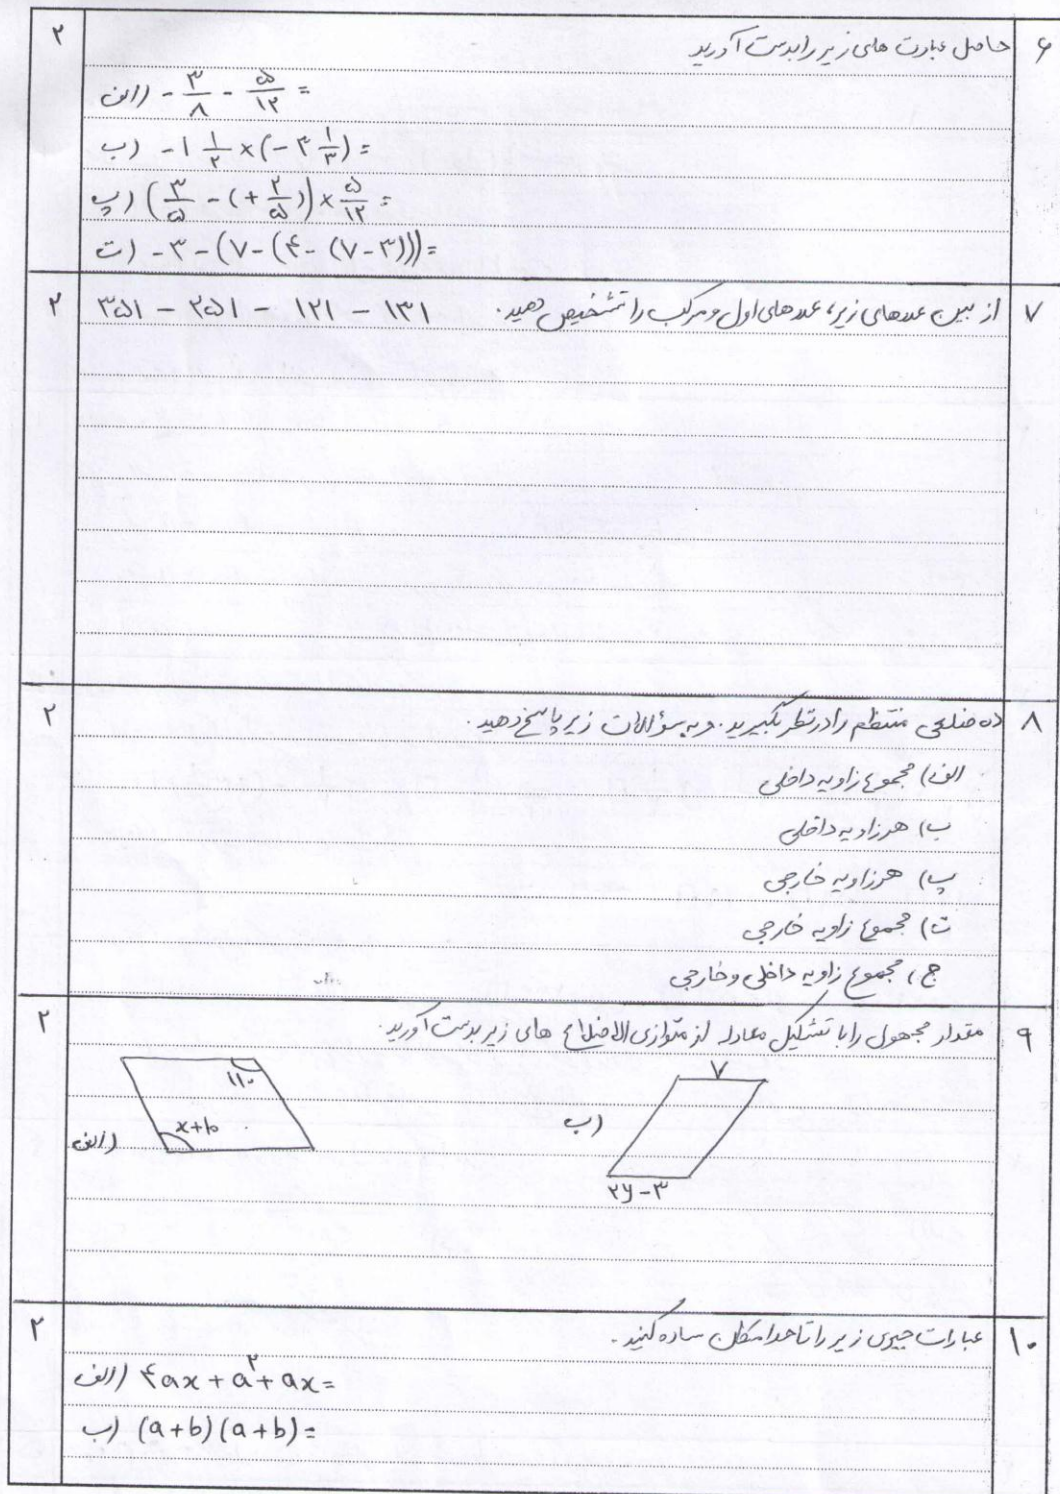 ۶ حاصل عبارت های زیر را بدست آورید ۲
الف) -۳/۸ - ۵/۱۲ =
ب) -۱ ۱/۲ × (-۳ ۱/۳) =
پ) (۳/۵ - (+۲/۵)) × ۵/۱۲ =
ت) -۳-(۷-(۴-(۷-۳)))=
۷ از بین عددهای زیر، عددهای اول و مرکب را تشخیص دهید. ۱۳۱ - ۱۲۱ - ۲۵۱ - ۳۵۱ ۲
۸ ده ضلعی منتظم را درنظر بگیرید. و به سؤالات زیر پاسخ دهید. ۲
الف) مجموع زاویه داخلی
ب) هر زاویه داخلی
پ) هر زاویه خارجی
ت) مجموع زاویه خارجی
ج) مجموع زاویه داخلی و خارجی
۹ مقدار مجهول را با تشکیل معادله از متوازی الاضلاع های زیر بدست آورید. ۲
الف) ۱۱۰ x+۱۰
ب) ۷ ۲y-۳
۱۰ عبارات جبری زیر را تا حد امکان ساده کنید. ۲
الف) ۴ax + a² + ax =
ب) (a+b)(a+b) =